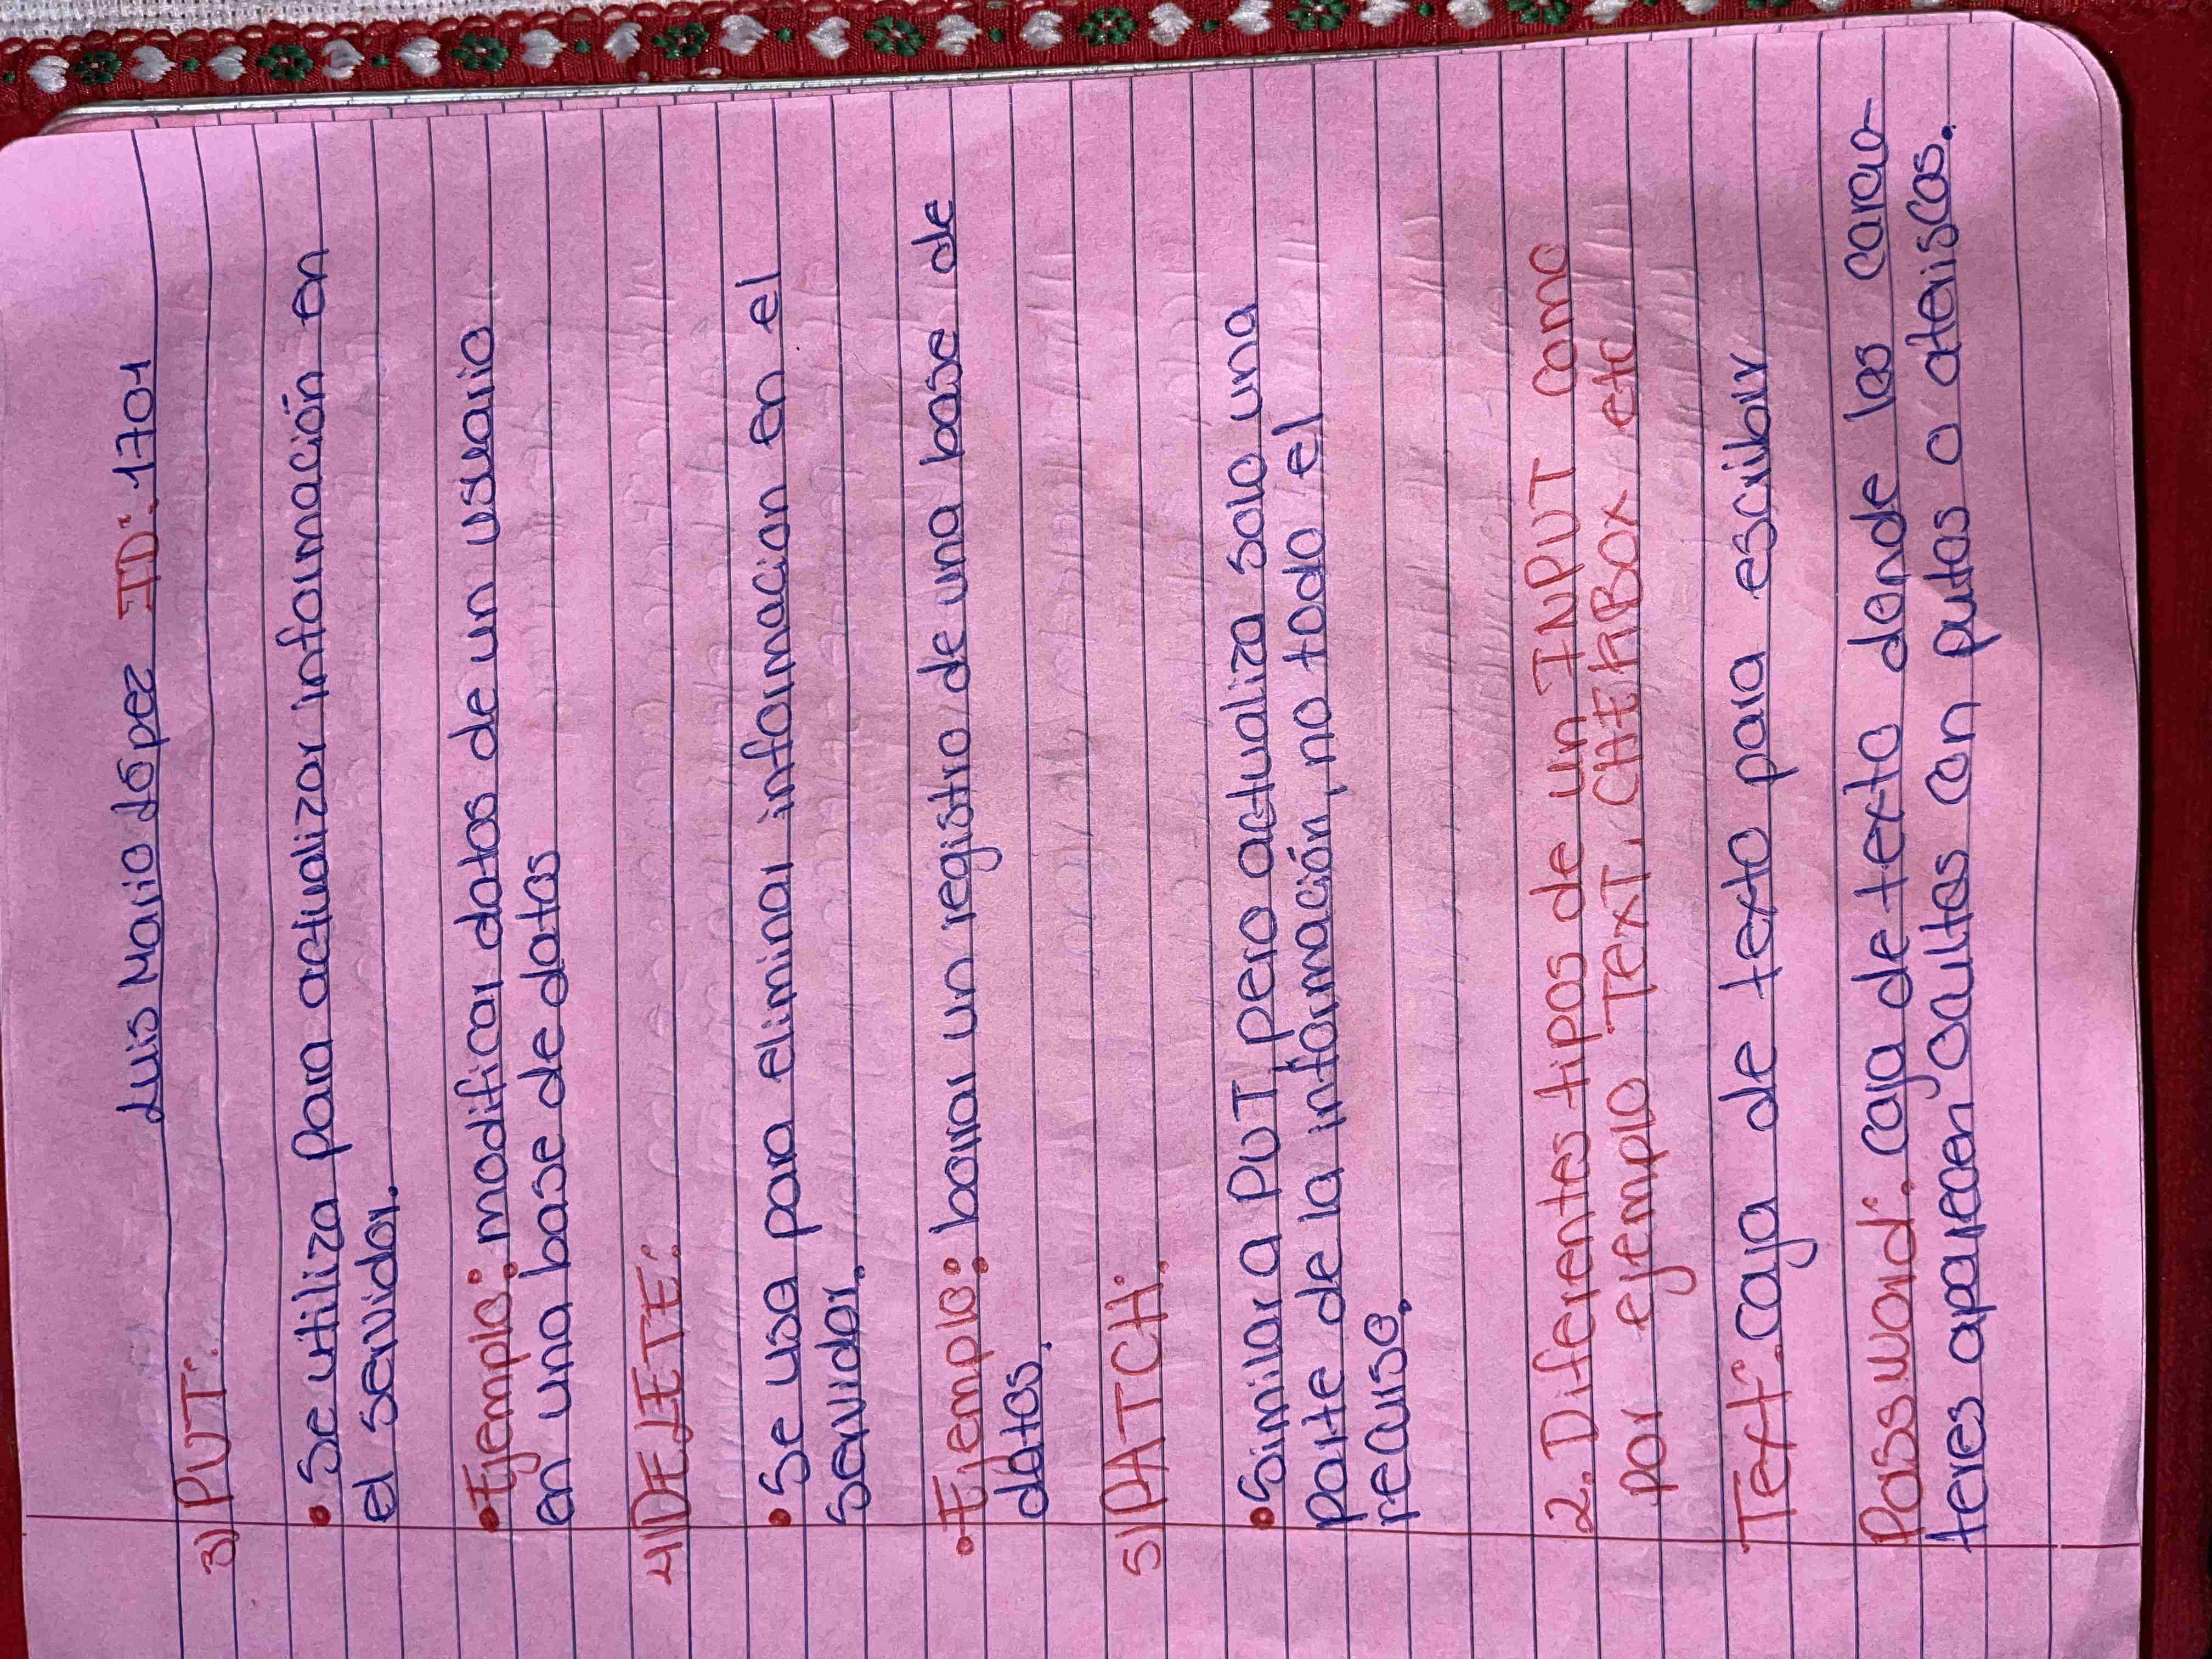 Luis Mario López ID: 1701
3) PUT:
• Se utiliza para actualizar información en
el servidor.
• Ejemplo: modificar datos de un usuario
en una base de datos
4) DELETE:
• Se usa para eliminar informacion en el
servidor.
• Ejemplo: borrar un registro de una base de
datos.
5) PATCH:
• Similar a PUT, pero actualiza solo una
parte de la información, no todo el
recurso.
2. Diferentes tipos de un INPUT como
por ejemplo TEXT, CHEKBOX etc
Text: caja de texto para escribir
Password: caja de texto donde las carac-
teres aparecen ocultos con putos o ateriscos.